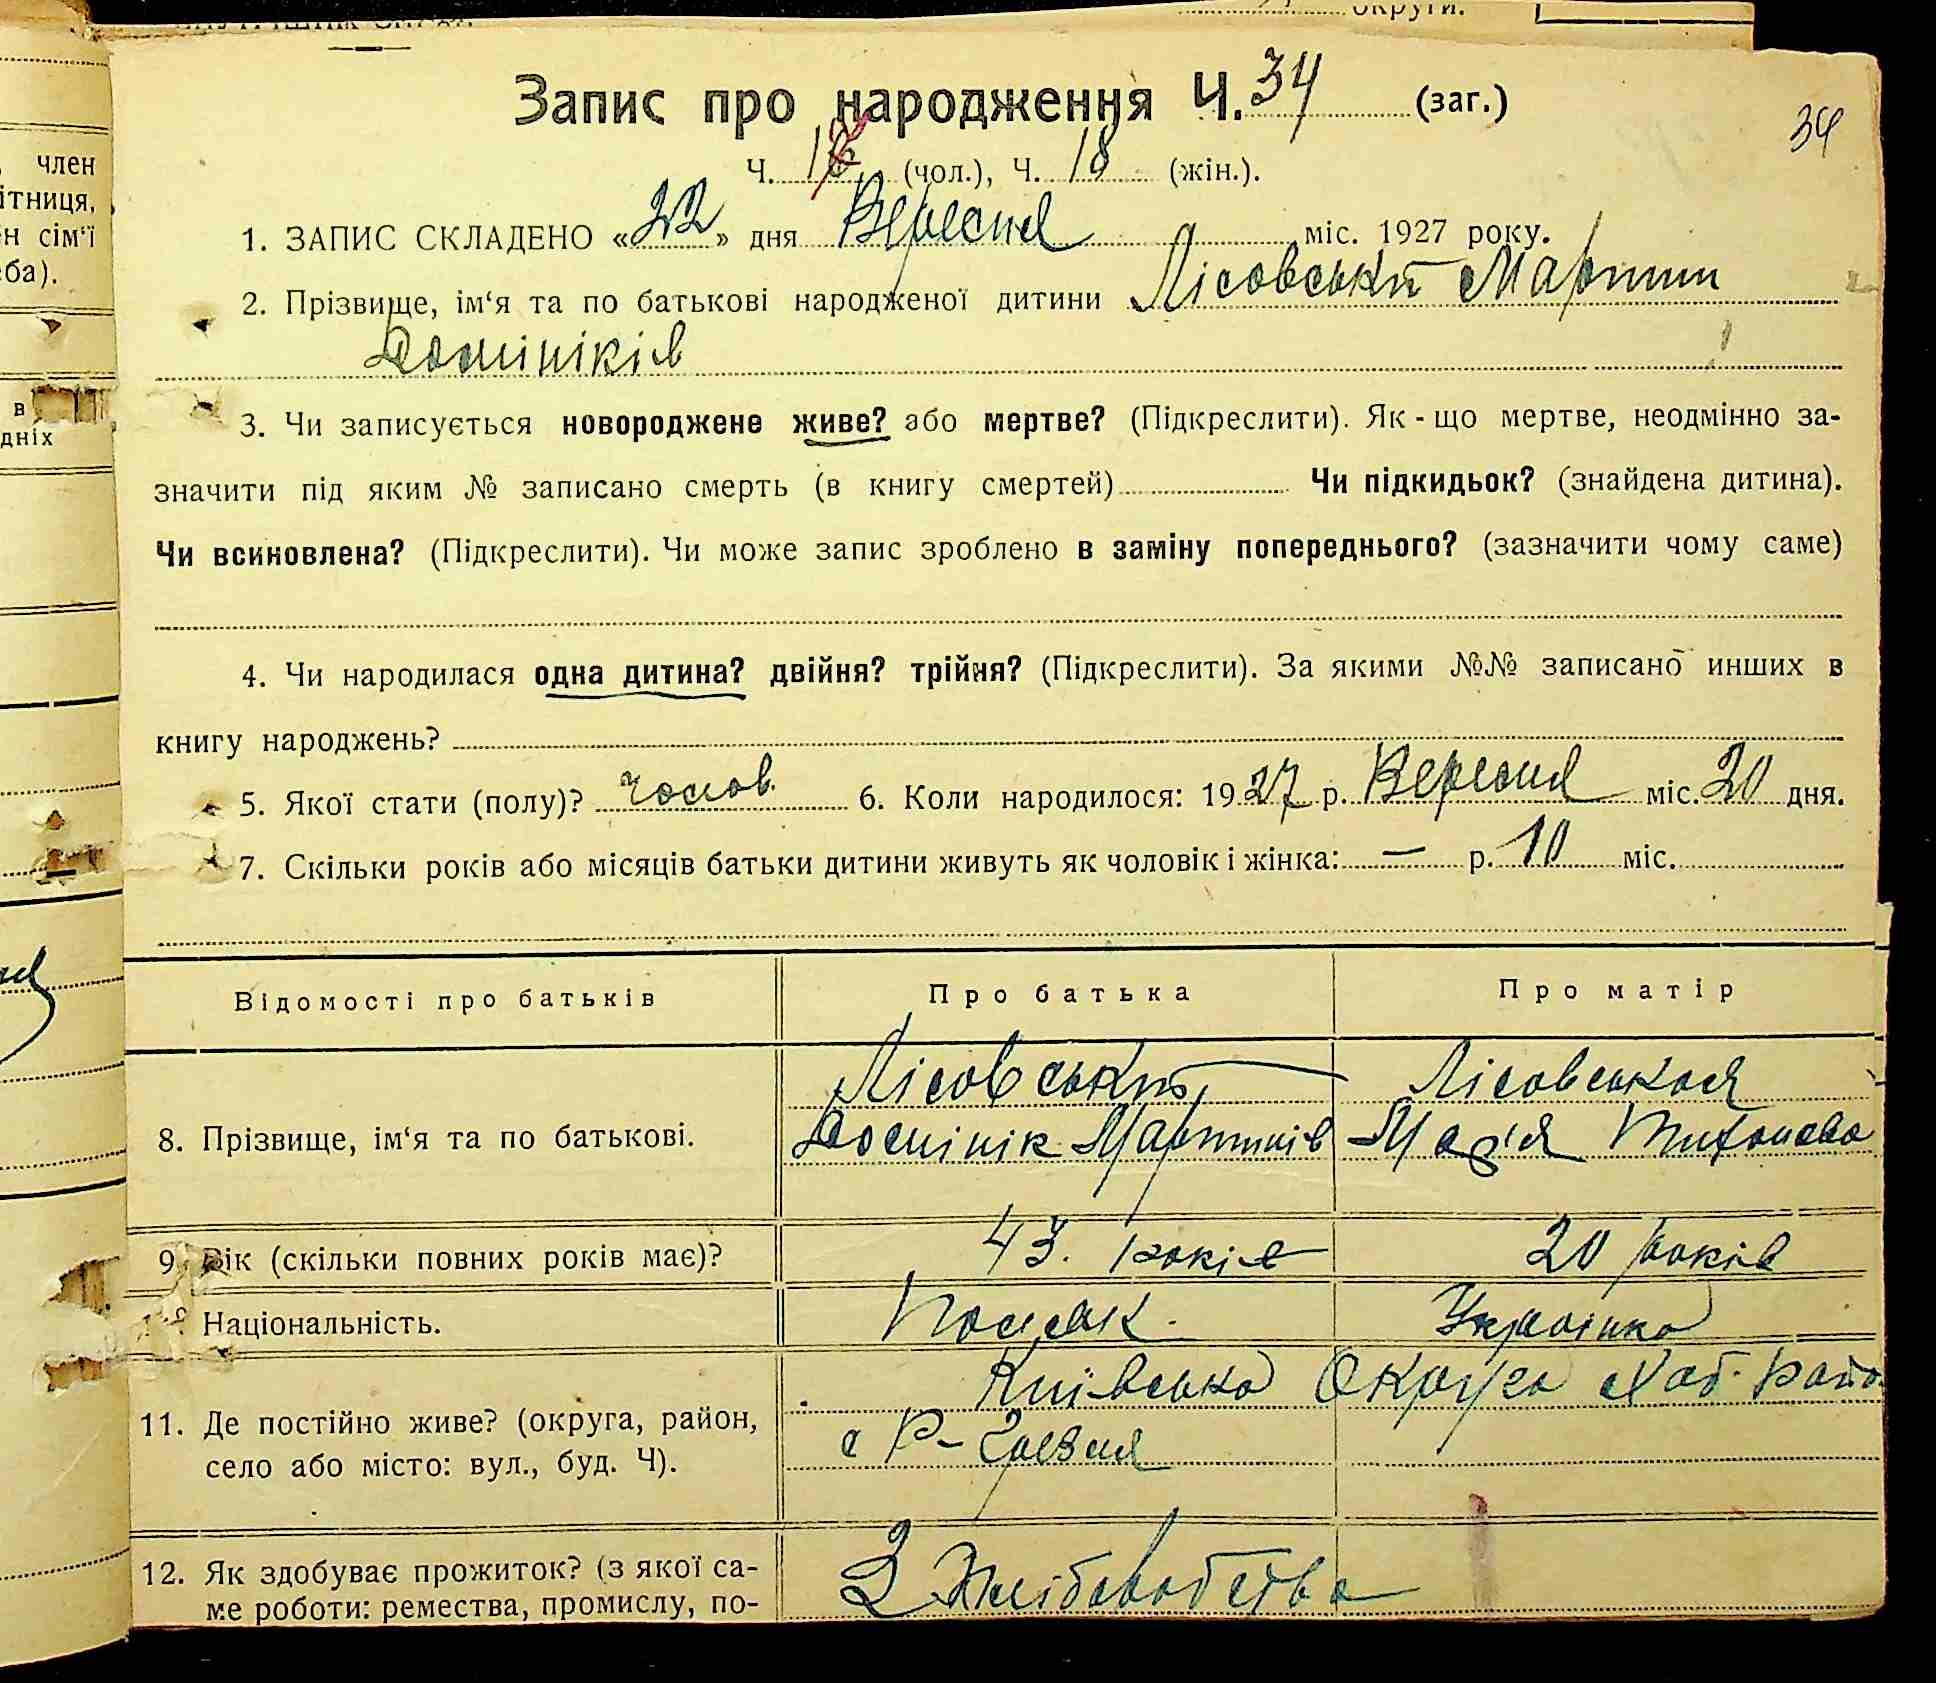 округи.
Запис про народження Ч. 34 (заг.)
34
Ч. (чол.), Ч. 18 (жін.).
член
ітниця,
н сім‘ї
ба).
в
дніх
1. ЗАПИС СКЛАДЕНО «22» дня Вересня міс. 1927 року.
2. Прізвище, ім‘я та по батькові народженої дитини Лісовський Мартин
Домініків
3. Чи записується новороджене живе? або мертве? (Підкреслити). Як-що мертве, неодмінно за-
значити під яким № записано смерть (в книгу смертей) Чи підкидьок? (знайдена дитина).
Чи всиновлена? (Підкреслити). Чи може запис зроблено в заміну попереднього? (зазначити чому саме)
4. Чи народилася одна дитина? двійня? трійня? (Підкреслити). За якими №№ записано инших в
книгу народжень?
5. Якої стати (полу)? чолов. 6. Коли народилося: 1927 р. Вересня міс. 20 дня.
7. Скільки років або місяців батьки дитини живуть як чоловік і жінка: — р. 10 міс.
Відомості про батьків Про батька Про матір
8. Прізвище, ім‘я та по батькові.
Лісовський Лісовськая
Домінік Мартинів Мар'я Тихонова
9. Вік (скільки повних років має)? 43. років 20 років
Національність. Поляк. Українка
11. Де постійно живе? (округа, район,
село або місто: вул., буд. Ч).
Київська Округа Хаб. Район
с Р-Гребля
12. Як здобуває прожиток? (з якої са-
ме роботи: ремества, промислу, по-
З Хліборобства